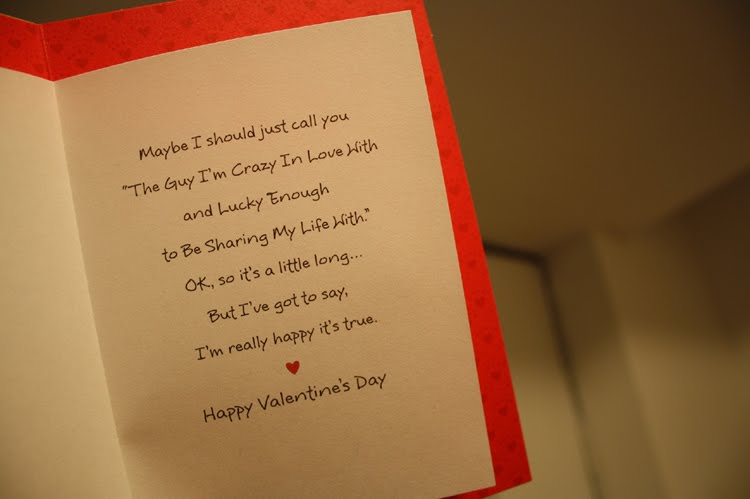 Maybe I should just call you
"The Guy I'm Crazy In Love With
and Lucky Enough
to Be Sharing My Life With."
OK, so it's a little long...
But I've got to say,
I'm really happy it's true.
Happy Valentine's Day